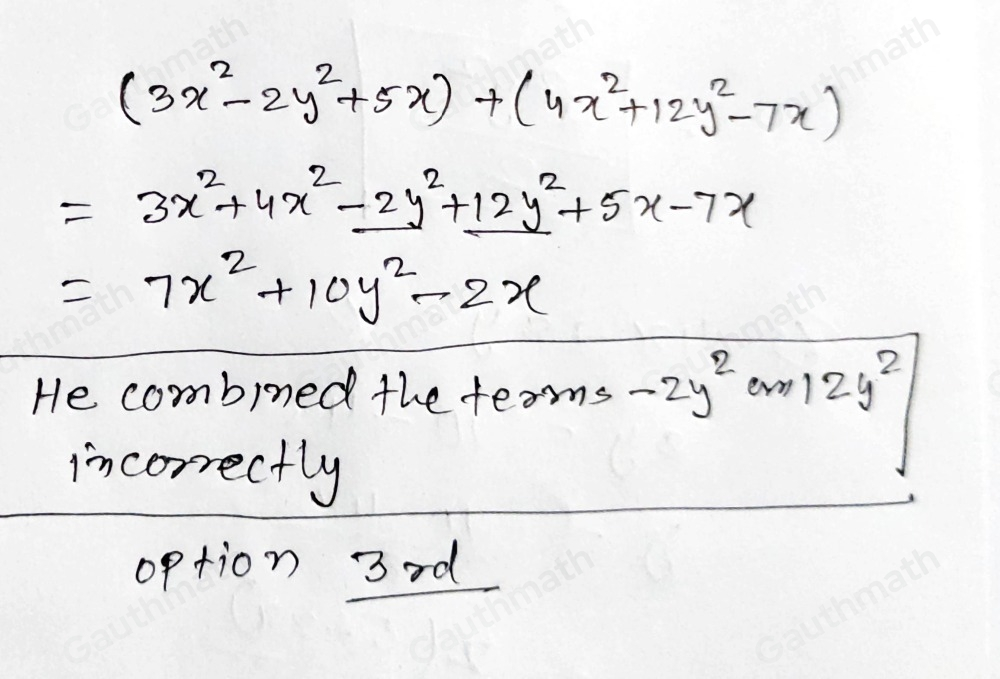 (3x²-2y²+5x) + (4x²+12y²-7x)
= 3x²+4x²-2y²+12y²+5x-7x
= 7x²+10y²-2x
He combined the terms -2y² 12y²
incorrectly
option 3rd
Gauthmath